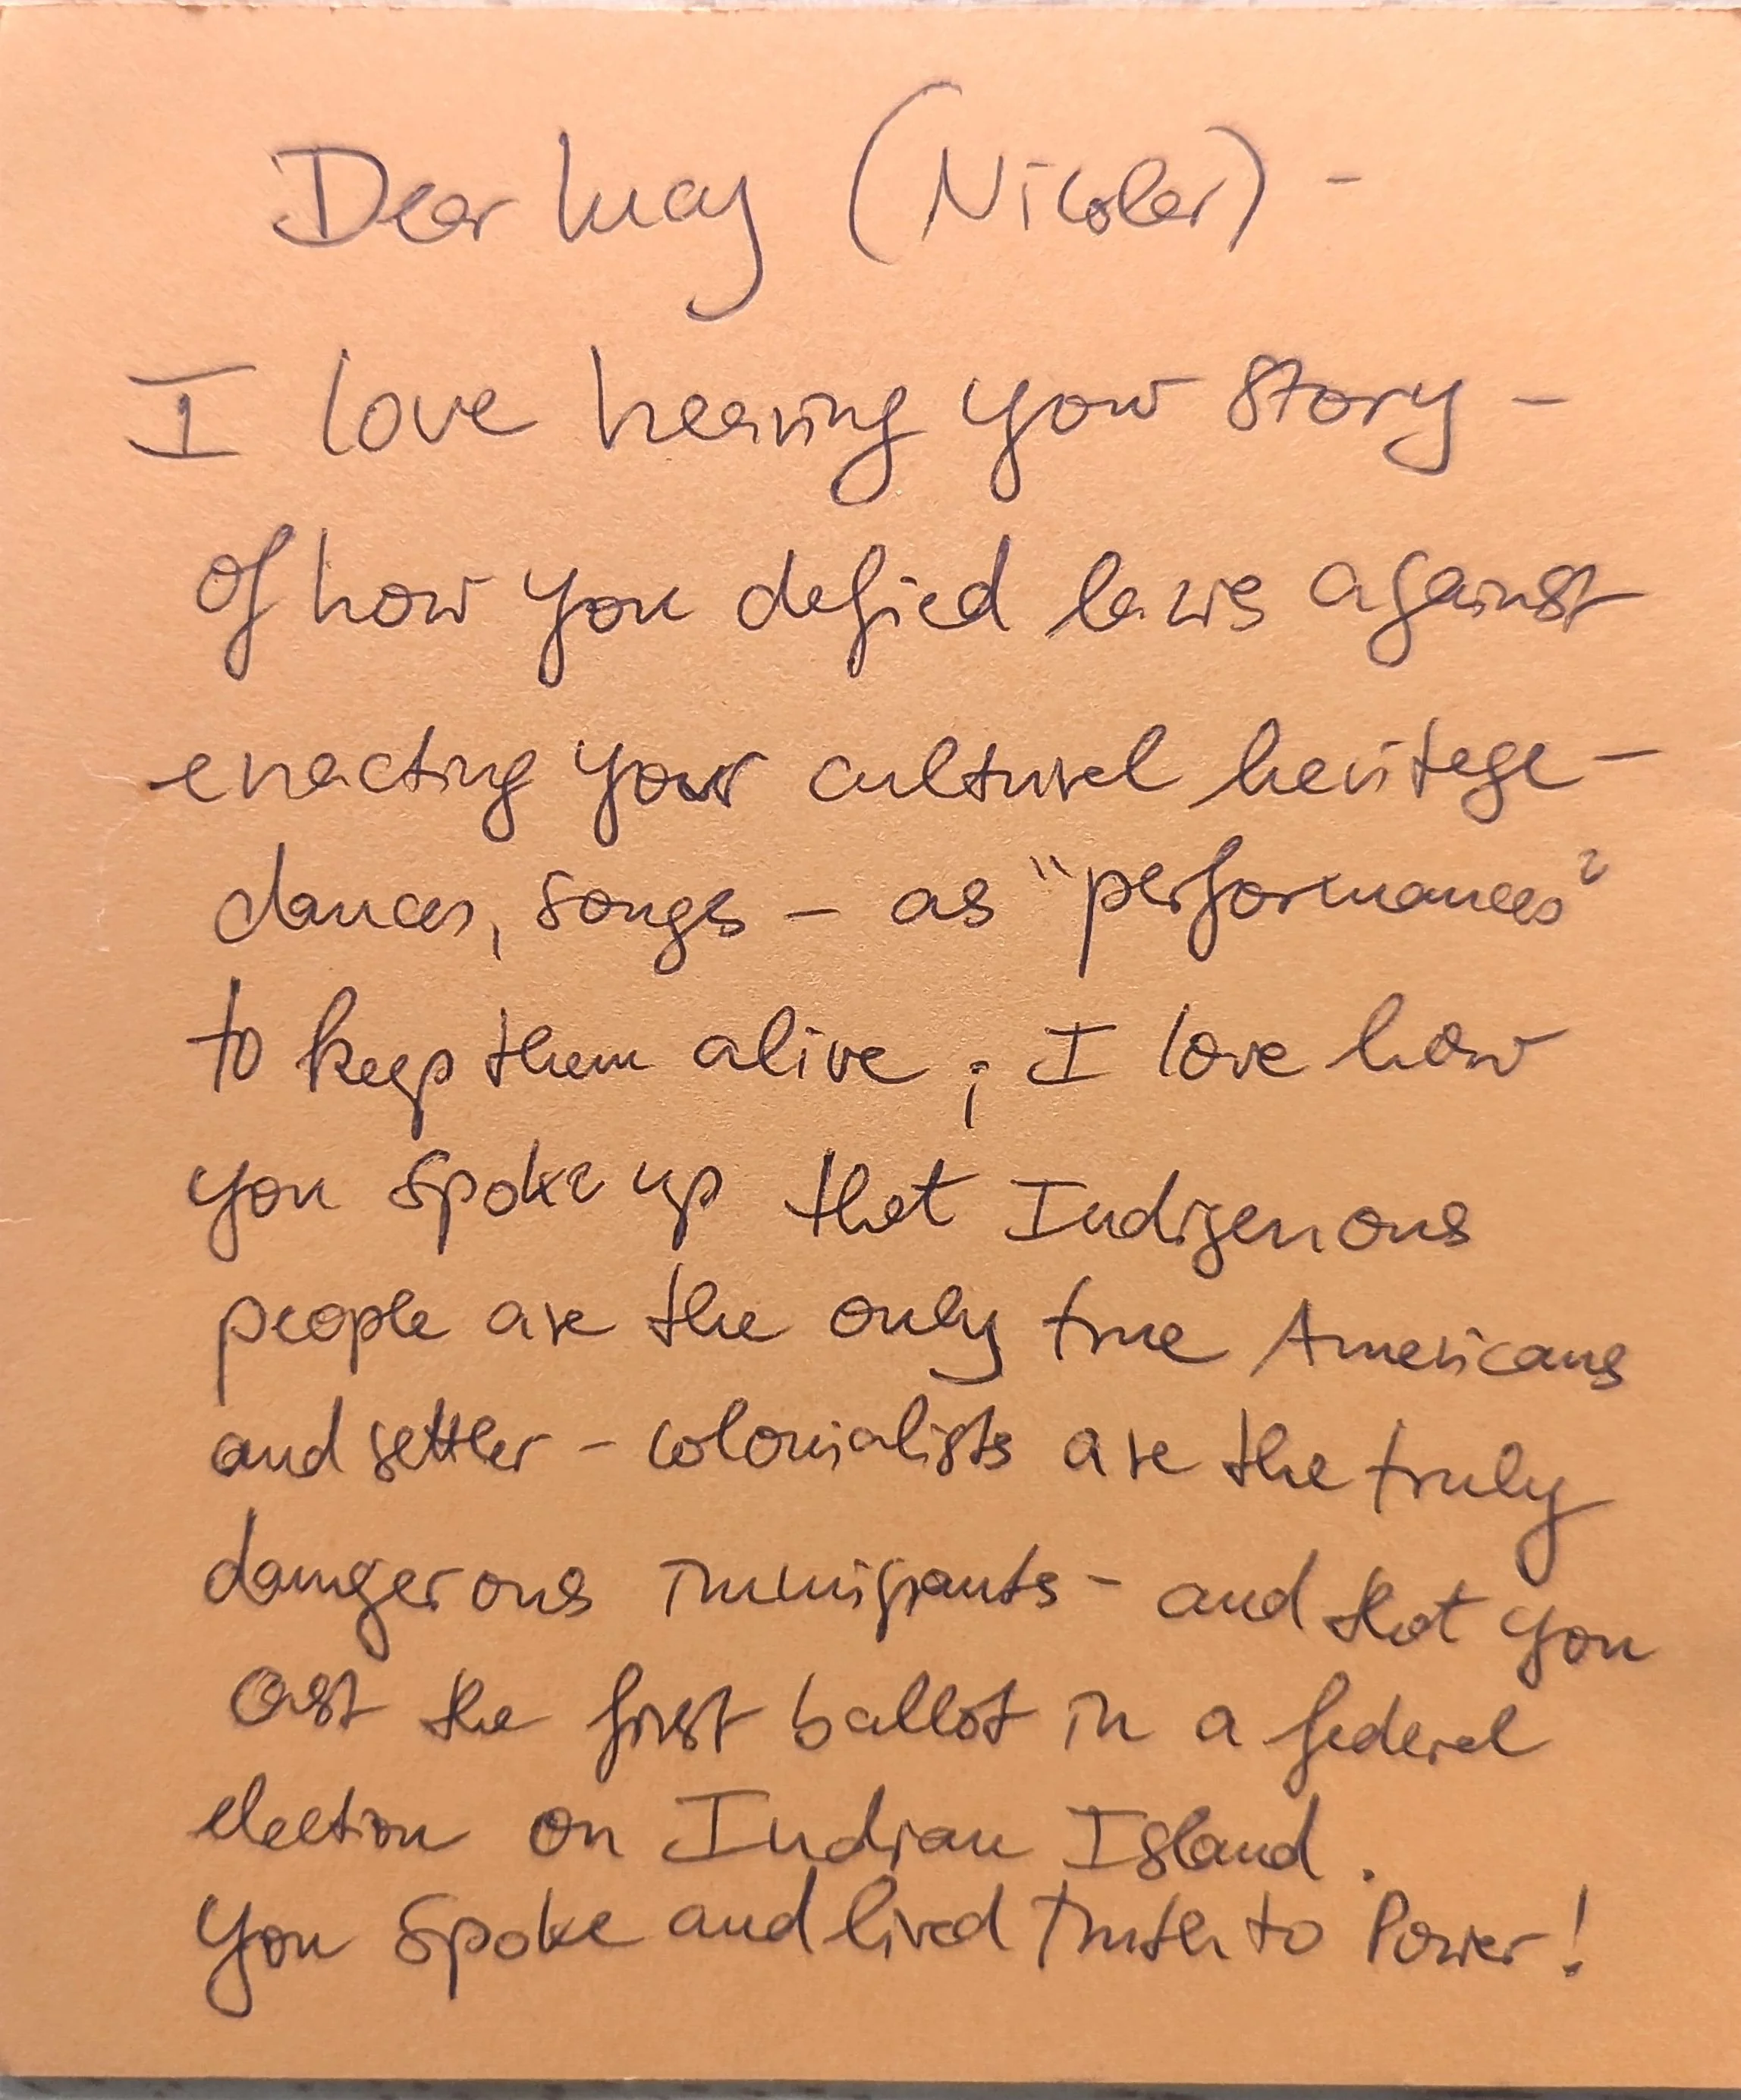 Dear Lucy (Nicolar) -
I love hearing your story -
of how you defied laws against
enacting your cultural heritage -
dances, songs - as "performances"
to keep them alive; I love how
you spoke up that Indigenous
people are the only true Americans
and settler - colonialists are the truly
dangerous immigrants - and that you
cast the first ballot in a federal
election on Indian Island.
You spoke and lived Truth to Power!